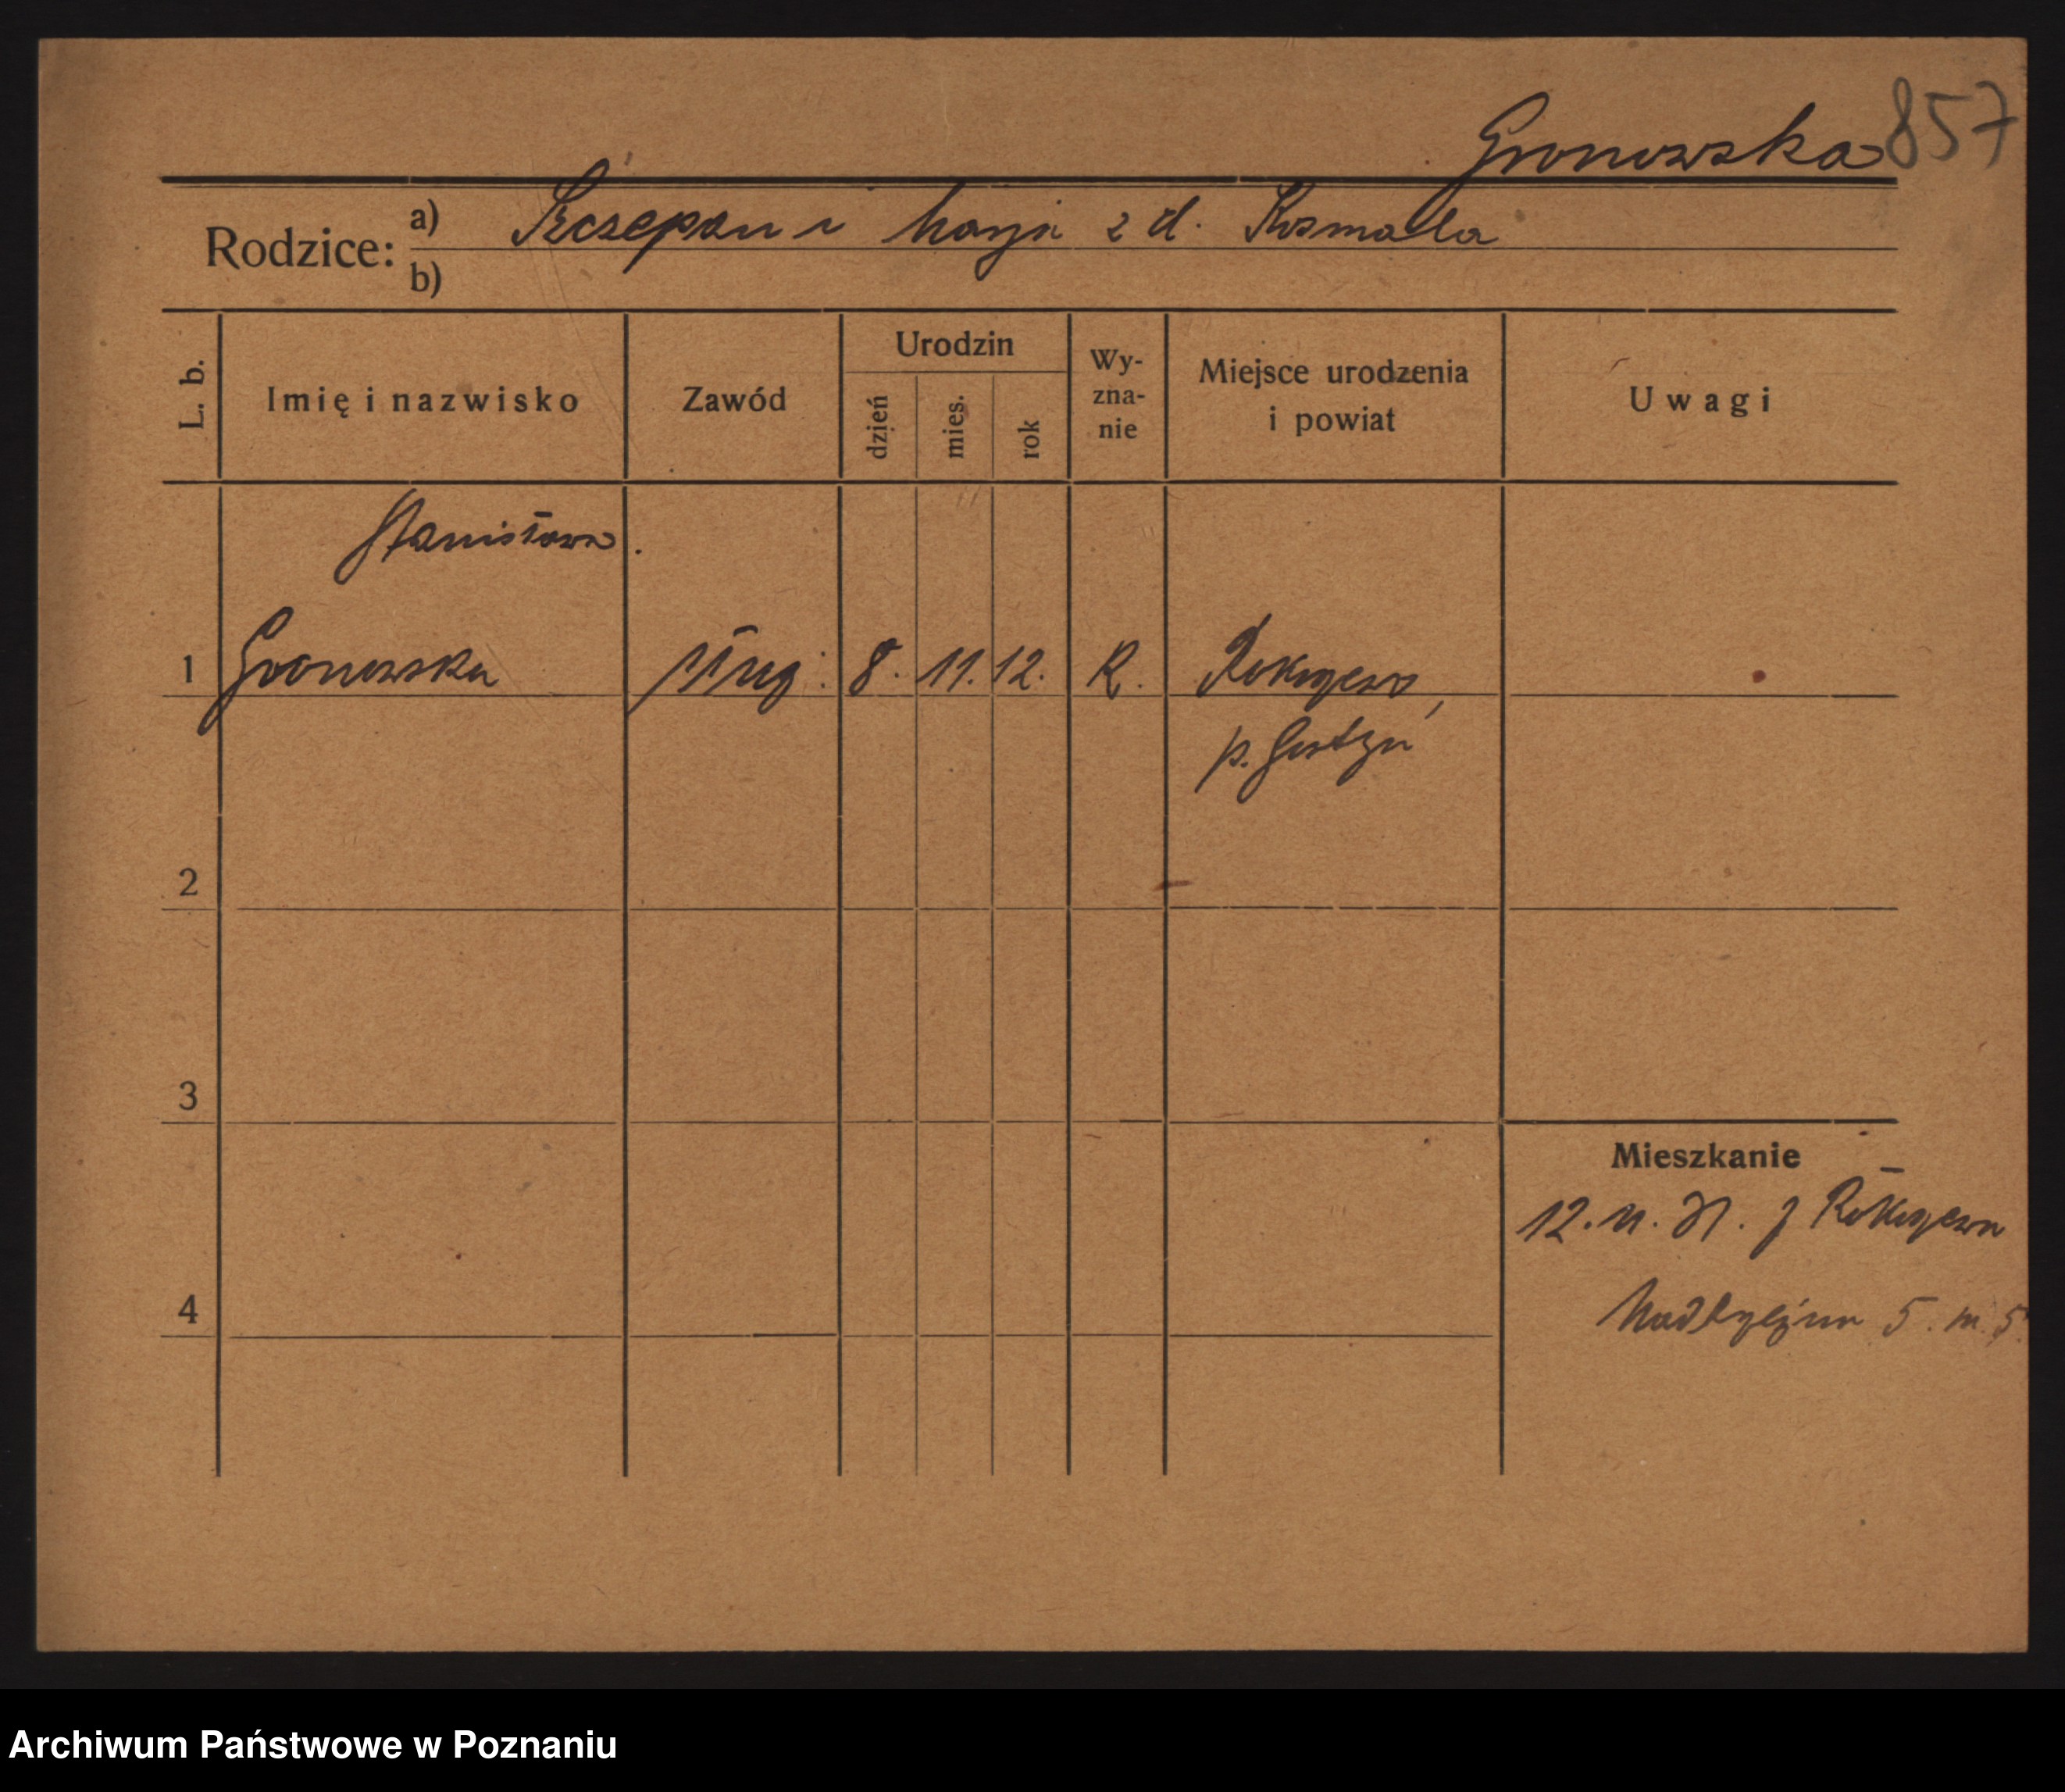 Gronowska 857
Rodzice: a) Szczepan i Marja z d. Kosmalla
b)
L. b. Imię i nazwisko Zawód Urodzin dzień mies. rok Wy-zna-nie Miejsce urodzenia i powiat Uwagi
Stanisława
1 Gronowska służ. 8. 11. 12. R. Rokosowo,
p. Gostyń
2
3
Mieszkanie
12. 11. z
4
5. m. 5.
Archiwum Państwowe w Poznaniu